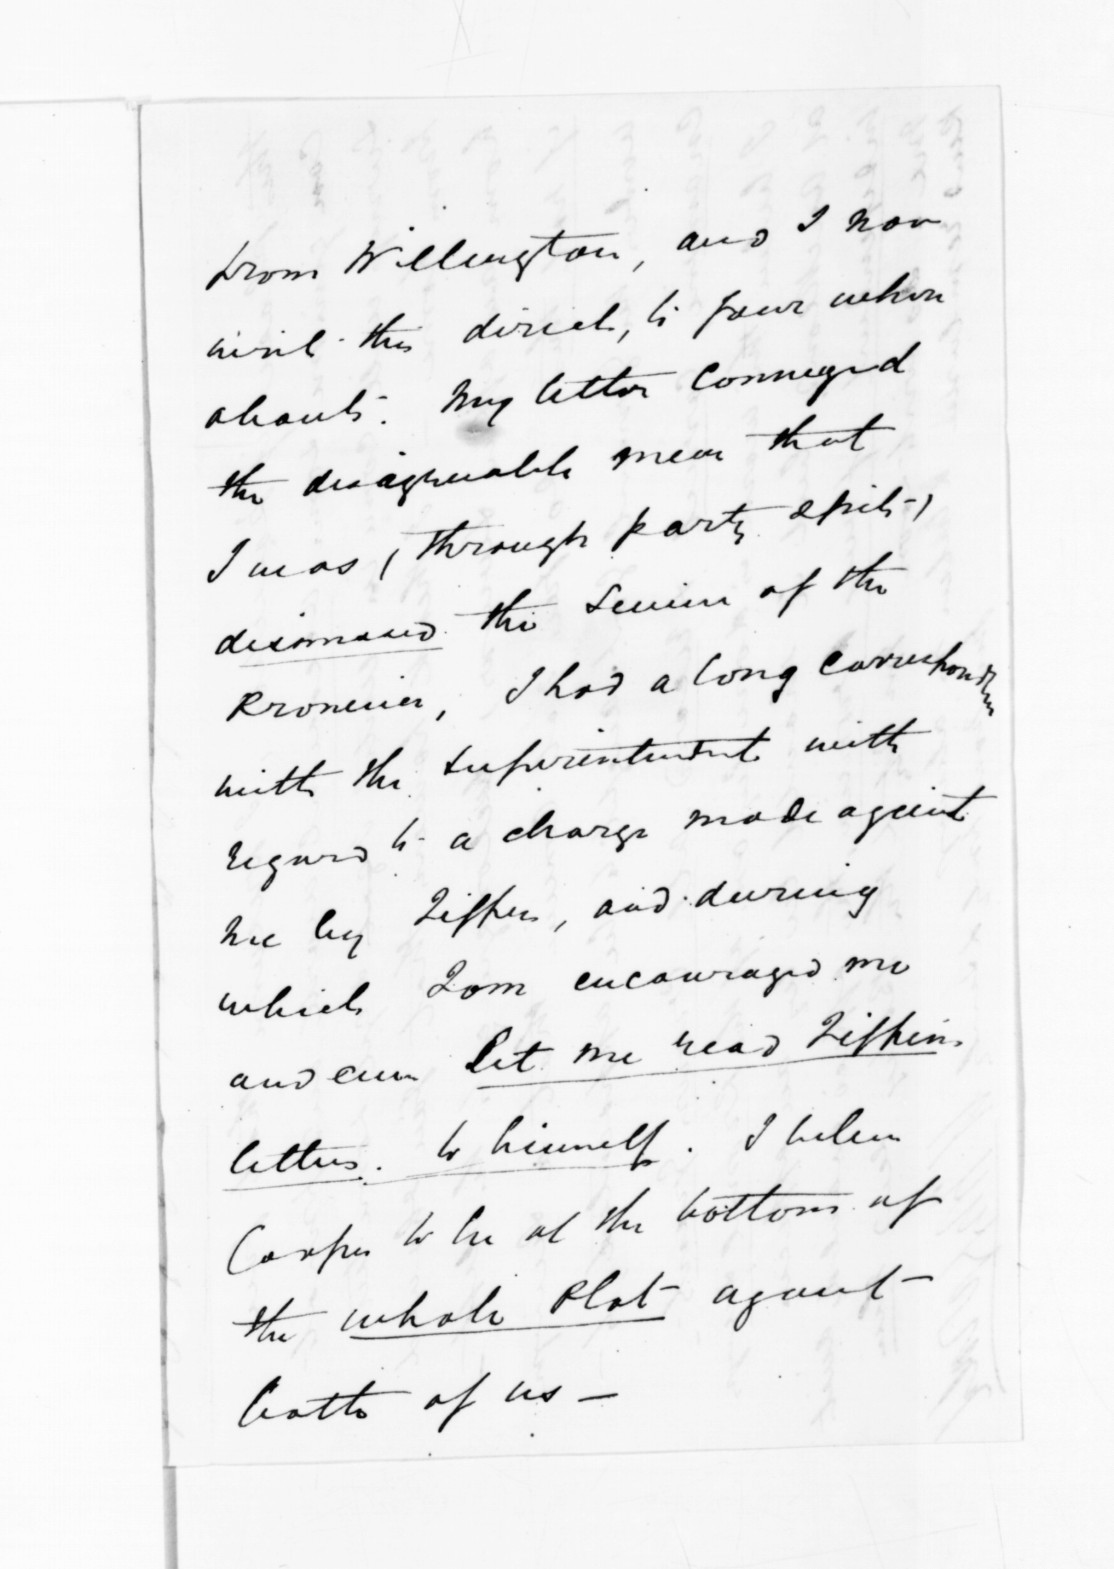 from Wellington, and I now
write this direct, to your where
abouts. My letter conveyed
the disagreeable news that
I was (through party spite)
dismissed the Service of the
Province, I had a long correspondence
with the Superintendent with
regard to a charge made against
me by Tiffen, and during
which Tom encouraged me
and even let me read Tiffens
letters to himself. I believe
Cooper to be at the bottom of
the whole Plot against
both of us —